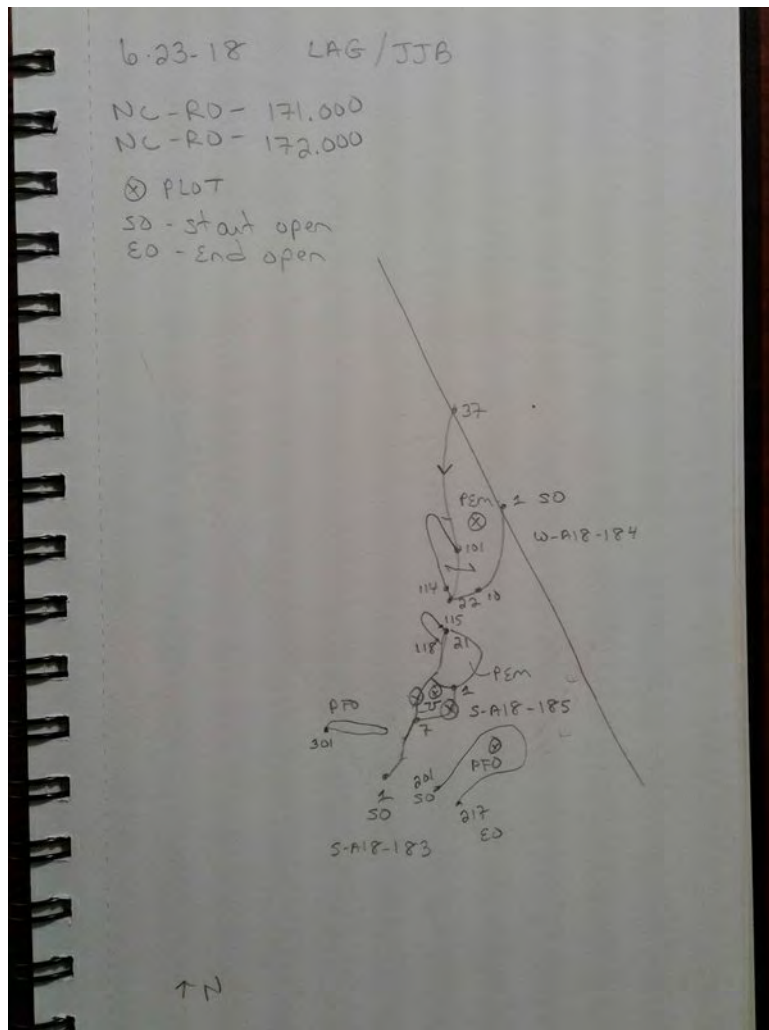 6.23-18 LAG/JJB
NC-RO- 171.000
NC-RO- 172.000
PLOT
SO - start open
EO - End open
37
PEM
1 SO
W-A18-184
101
114
22 10
115
118
21
PEM
1
S-A18-185
7
PFO
301
PFO
1
SO
201
SO
217
EO
S-A18-183
↑N